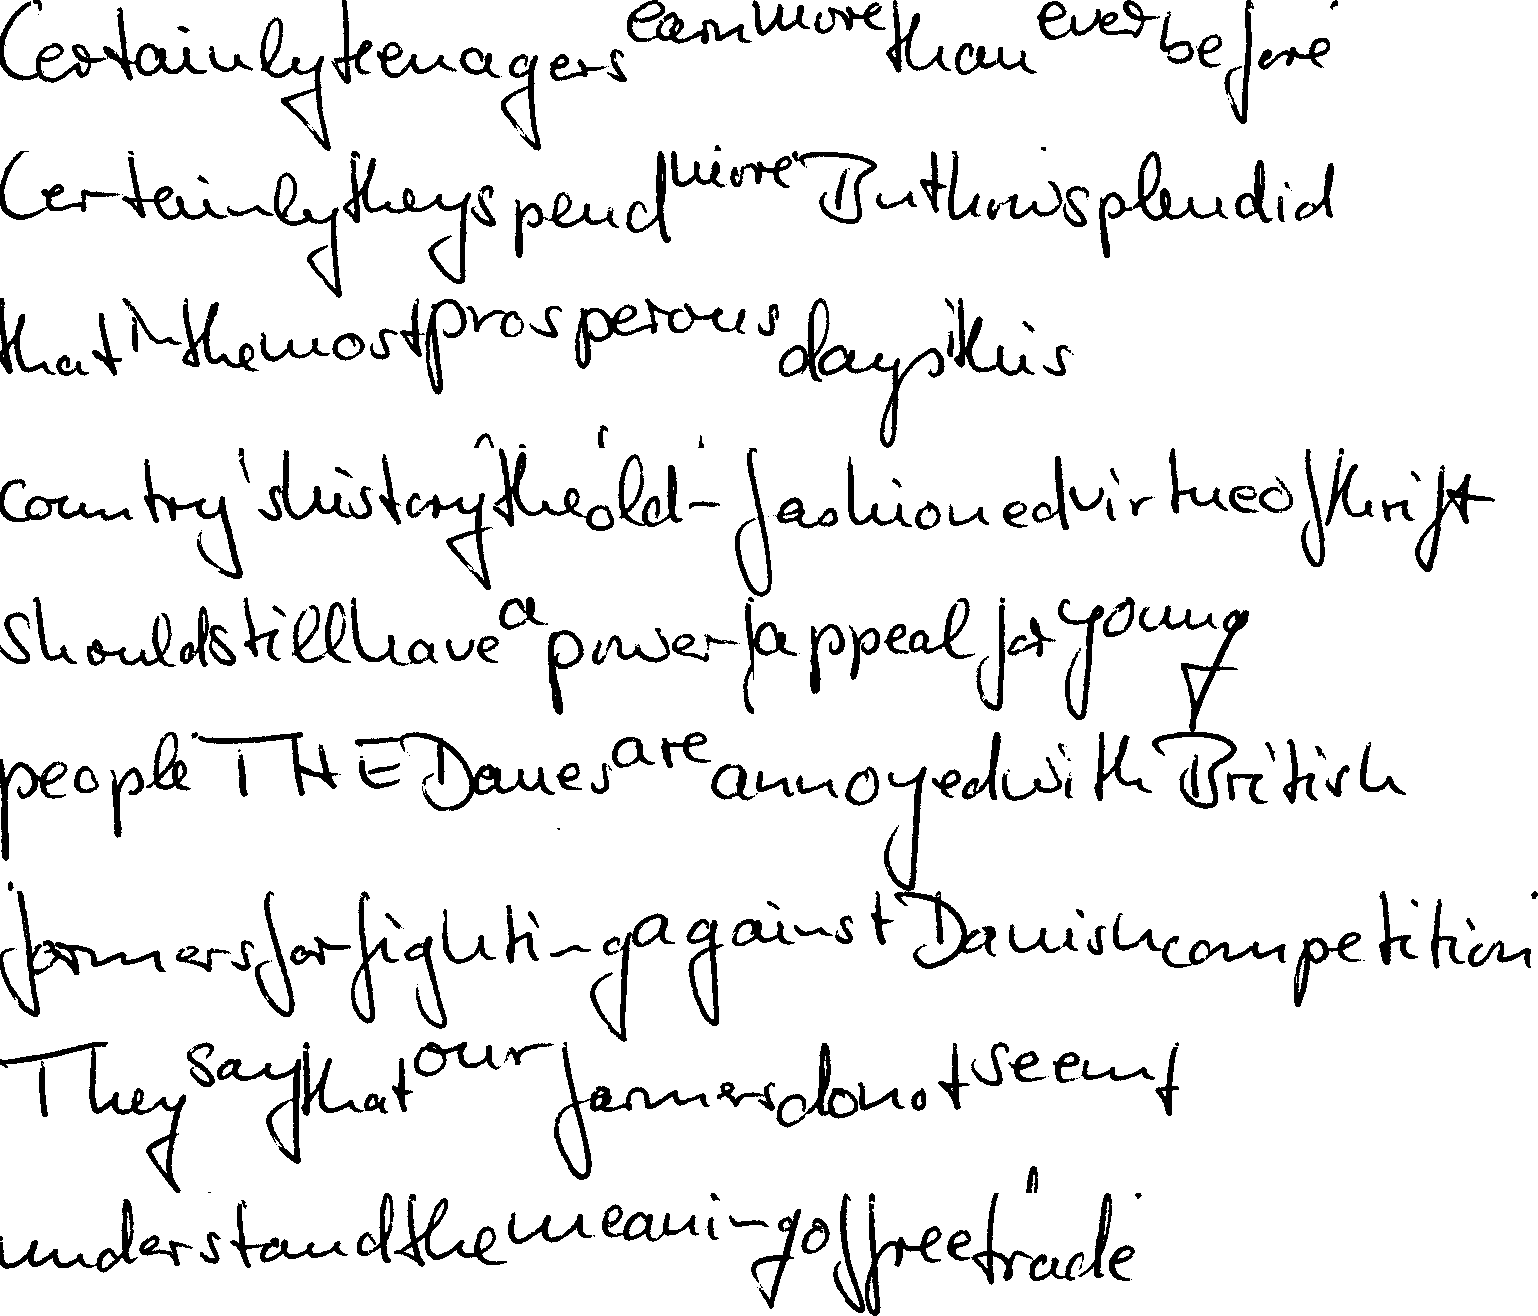 Certainly teenagers earn more than ever before
Certainly they spend more But how splendid
that in the most prosperous days in this
country's history the old-fashioned virtue of thrift
should still have a powerf appeal for young
people THE Danes are annoyed with British
farmers for fighting against Danish competition
They say that our farmers do not seem t
understand the meaning of free trade